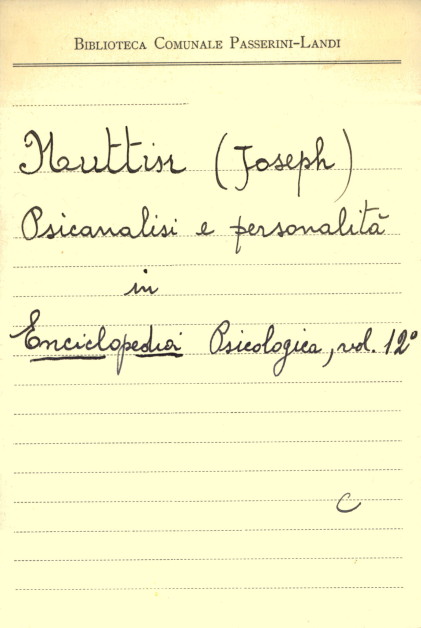 Biblioteca Comunale Passerini-Landi
Nuttin (Joseph)
Psicanalisi e personalità
in
Enciclopedia Psicologica, vol. 12°
C